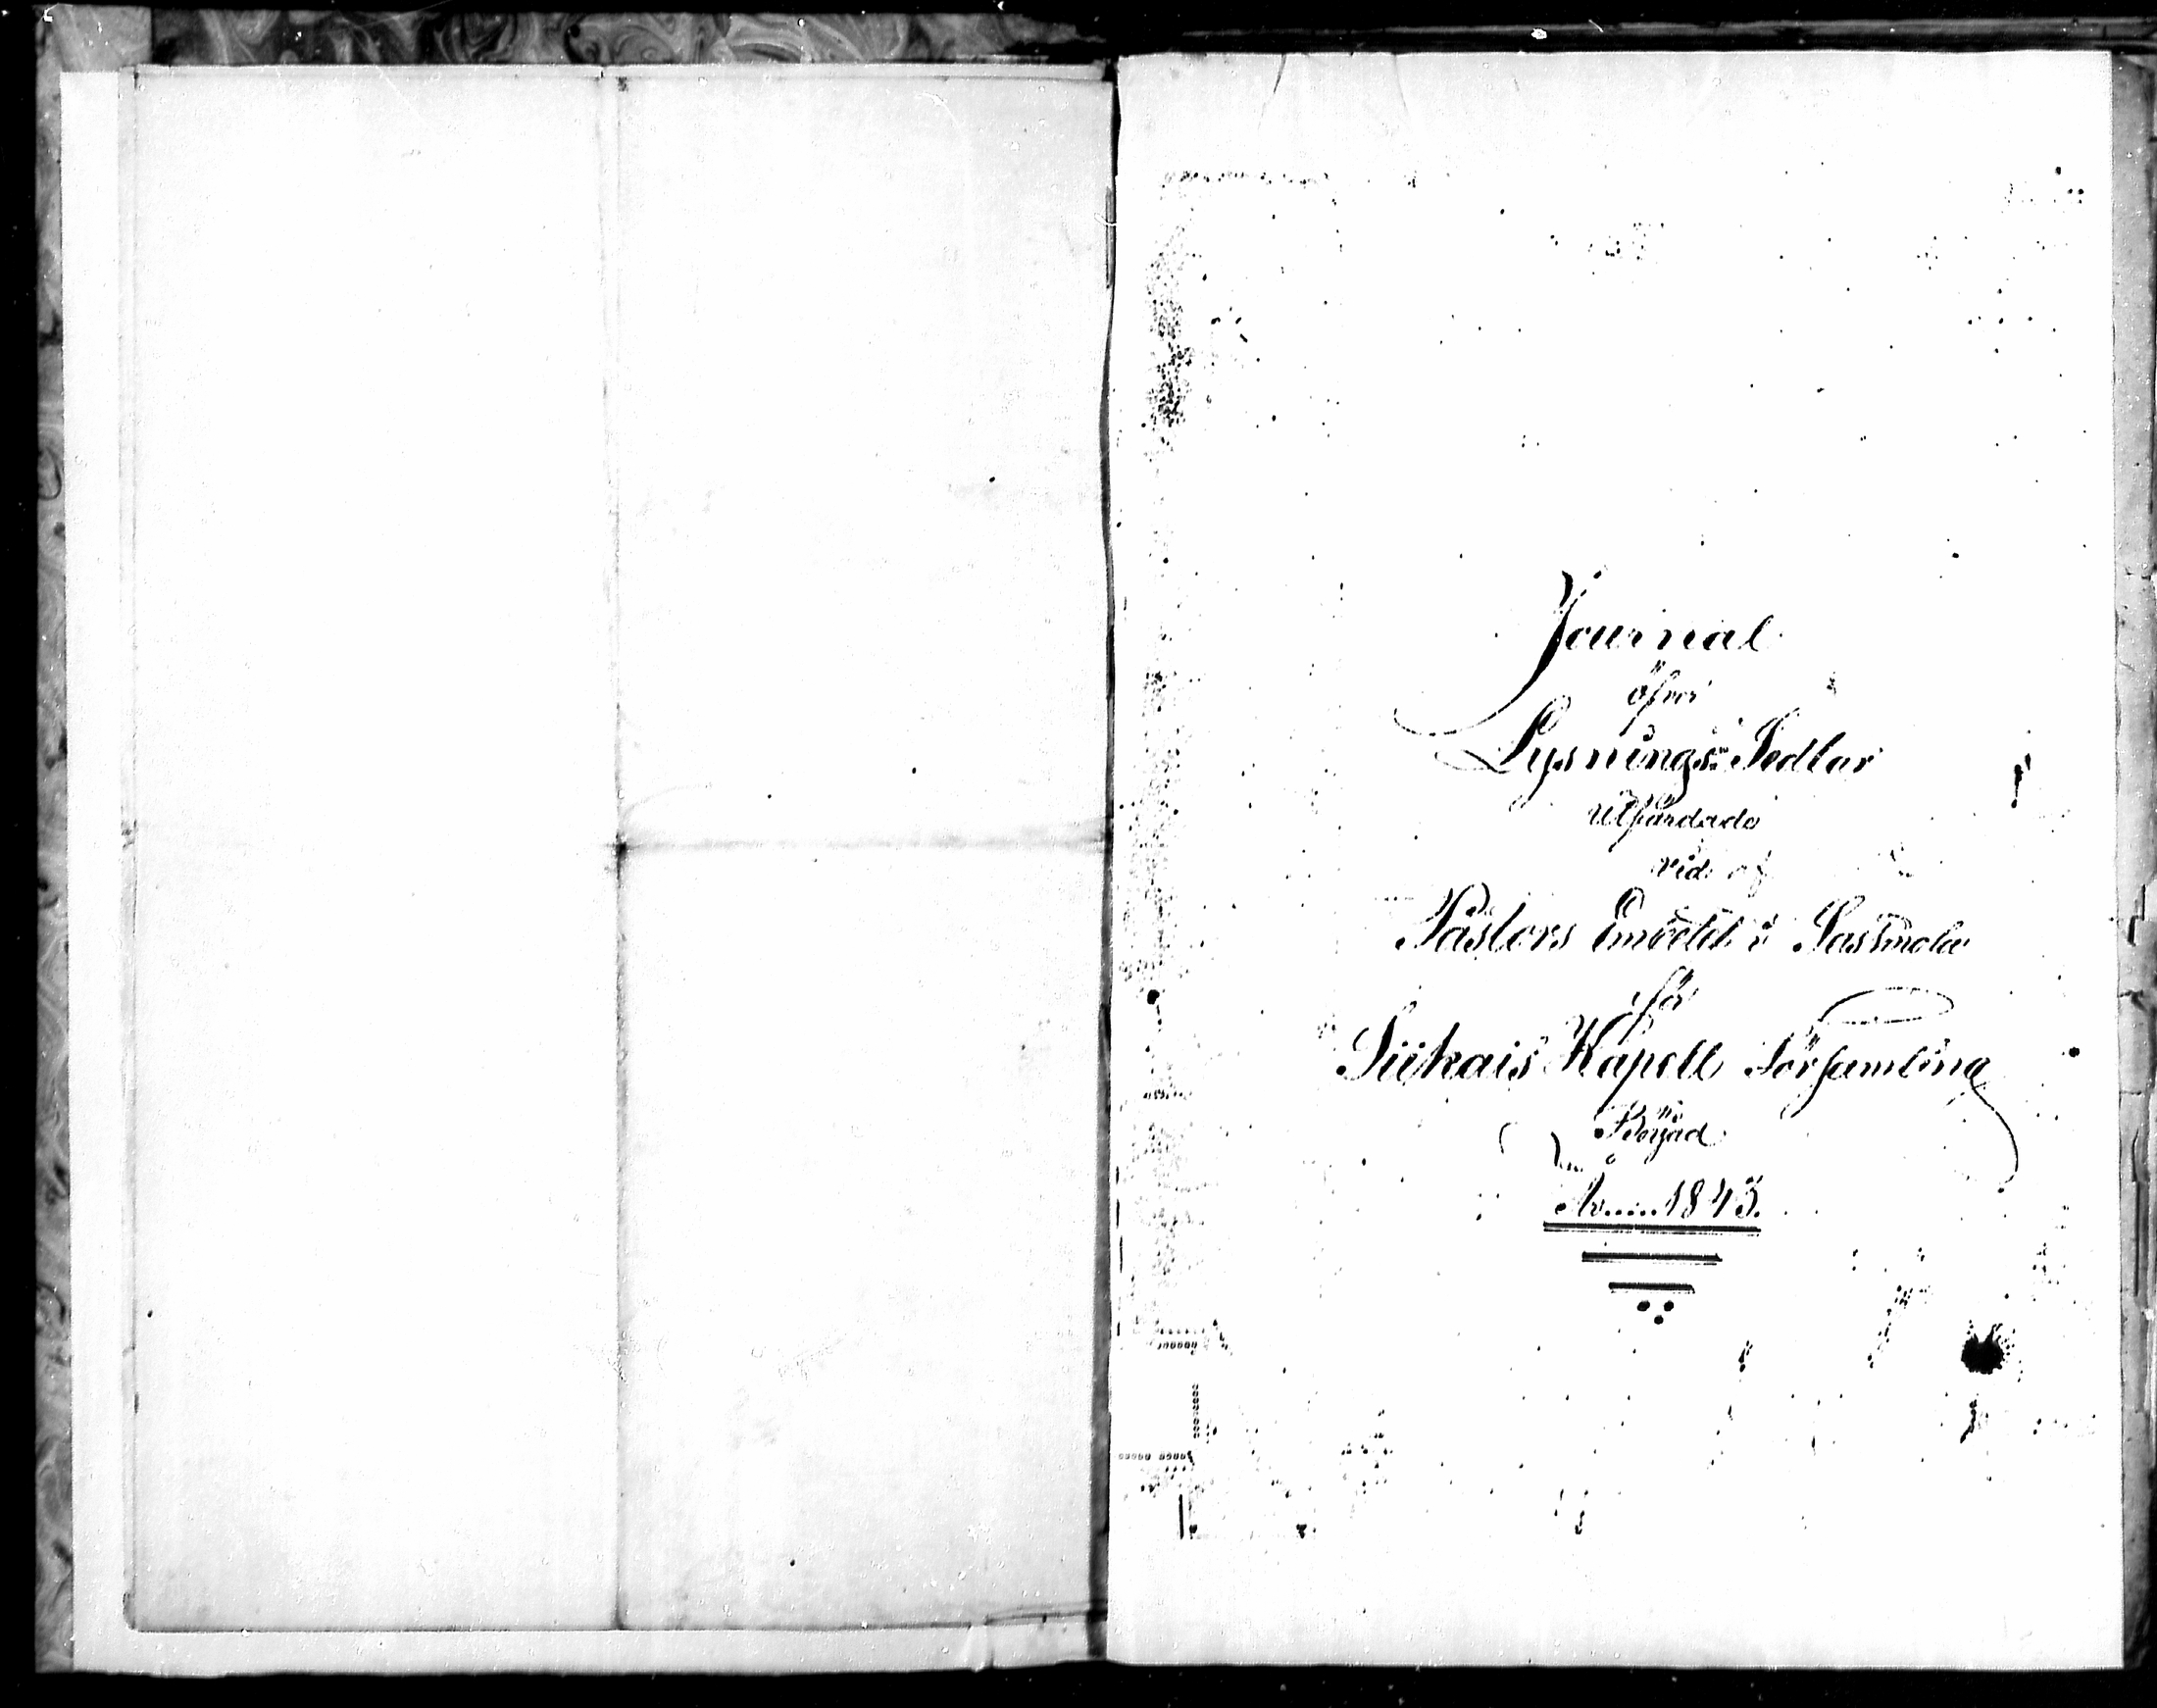 Journal
öfver
Lysnings-Sedlar
utfärdade
vid
Pastors Embetet i Sastmola
för
Siikais Kapell Församling
Börjad
År.....1843.